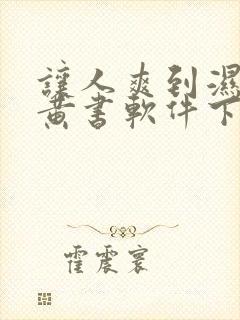 讓人爽到濕
黄書軟件下
霍震寰